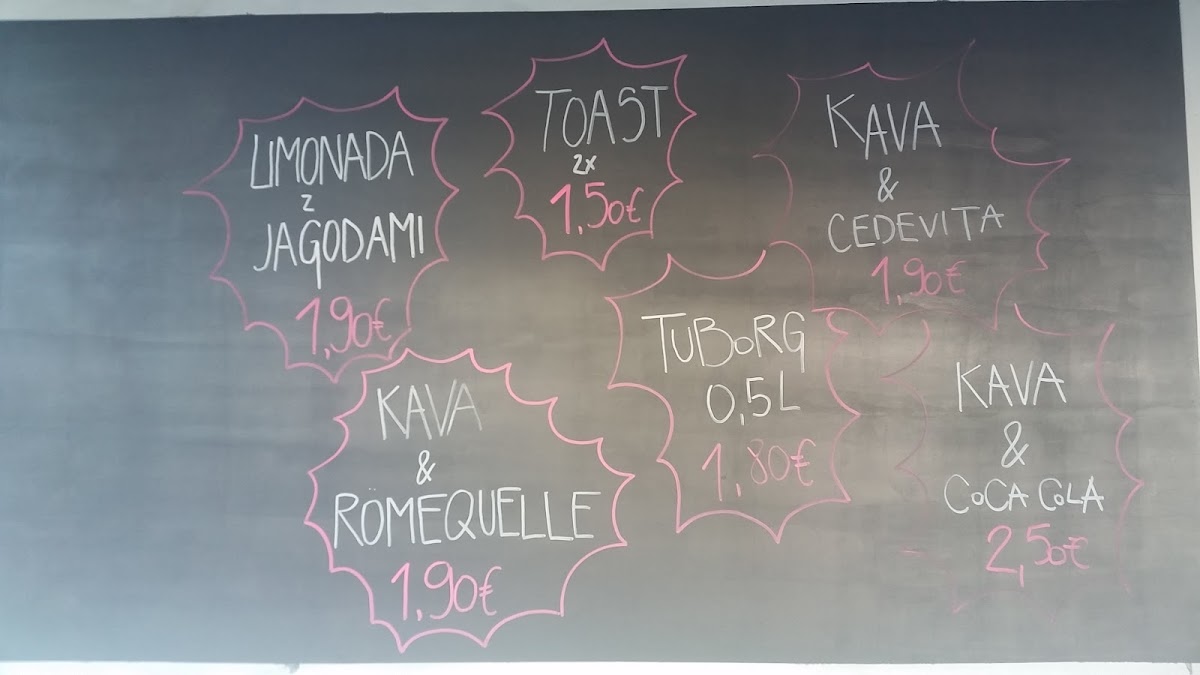 LIMONADA
z
JAGODAMI
1,90€
TOAST
2x
1,50€
KAVA
&
CEDEVITA
1,90€
KAVA
&
RÖMEQUELLE
1,90€
TUBORG
0,5L
1,80€
KAVA
&
COCA COLA
2,50€